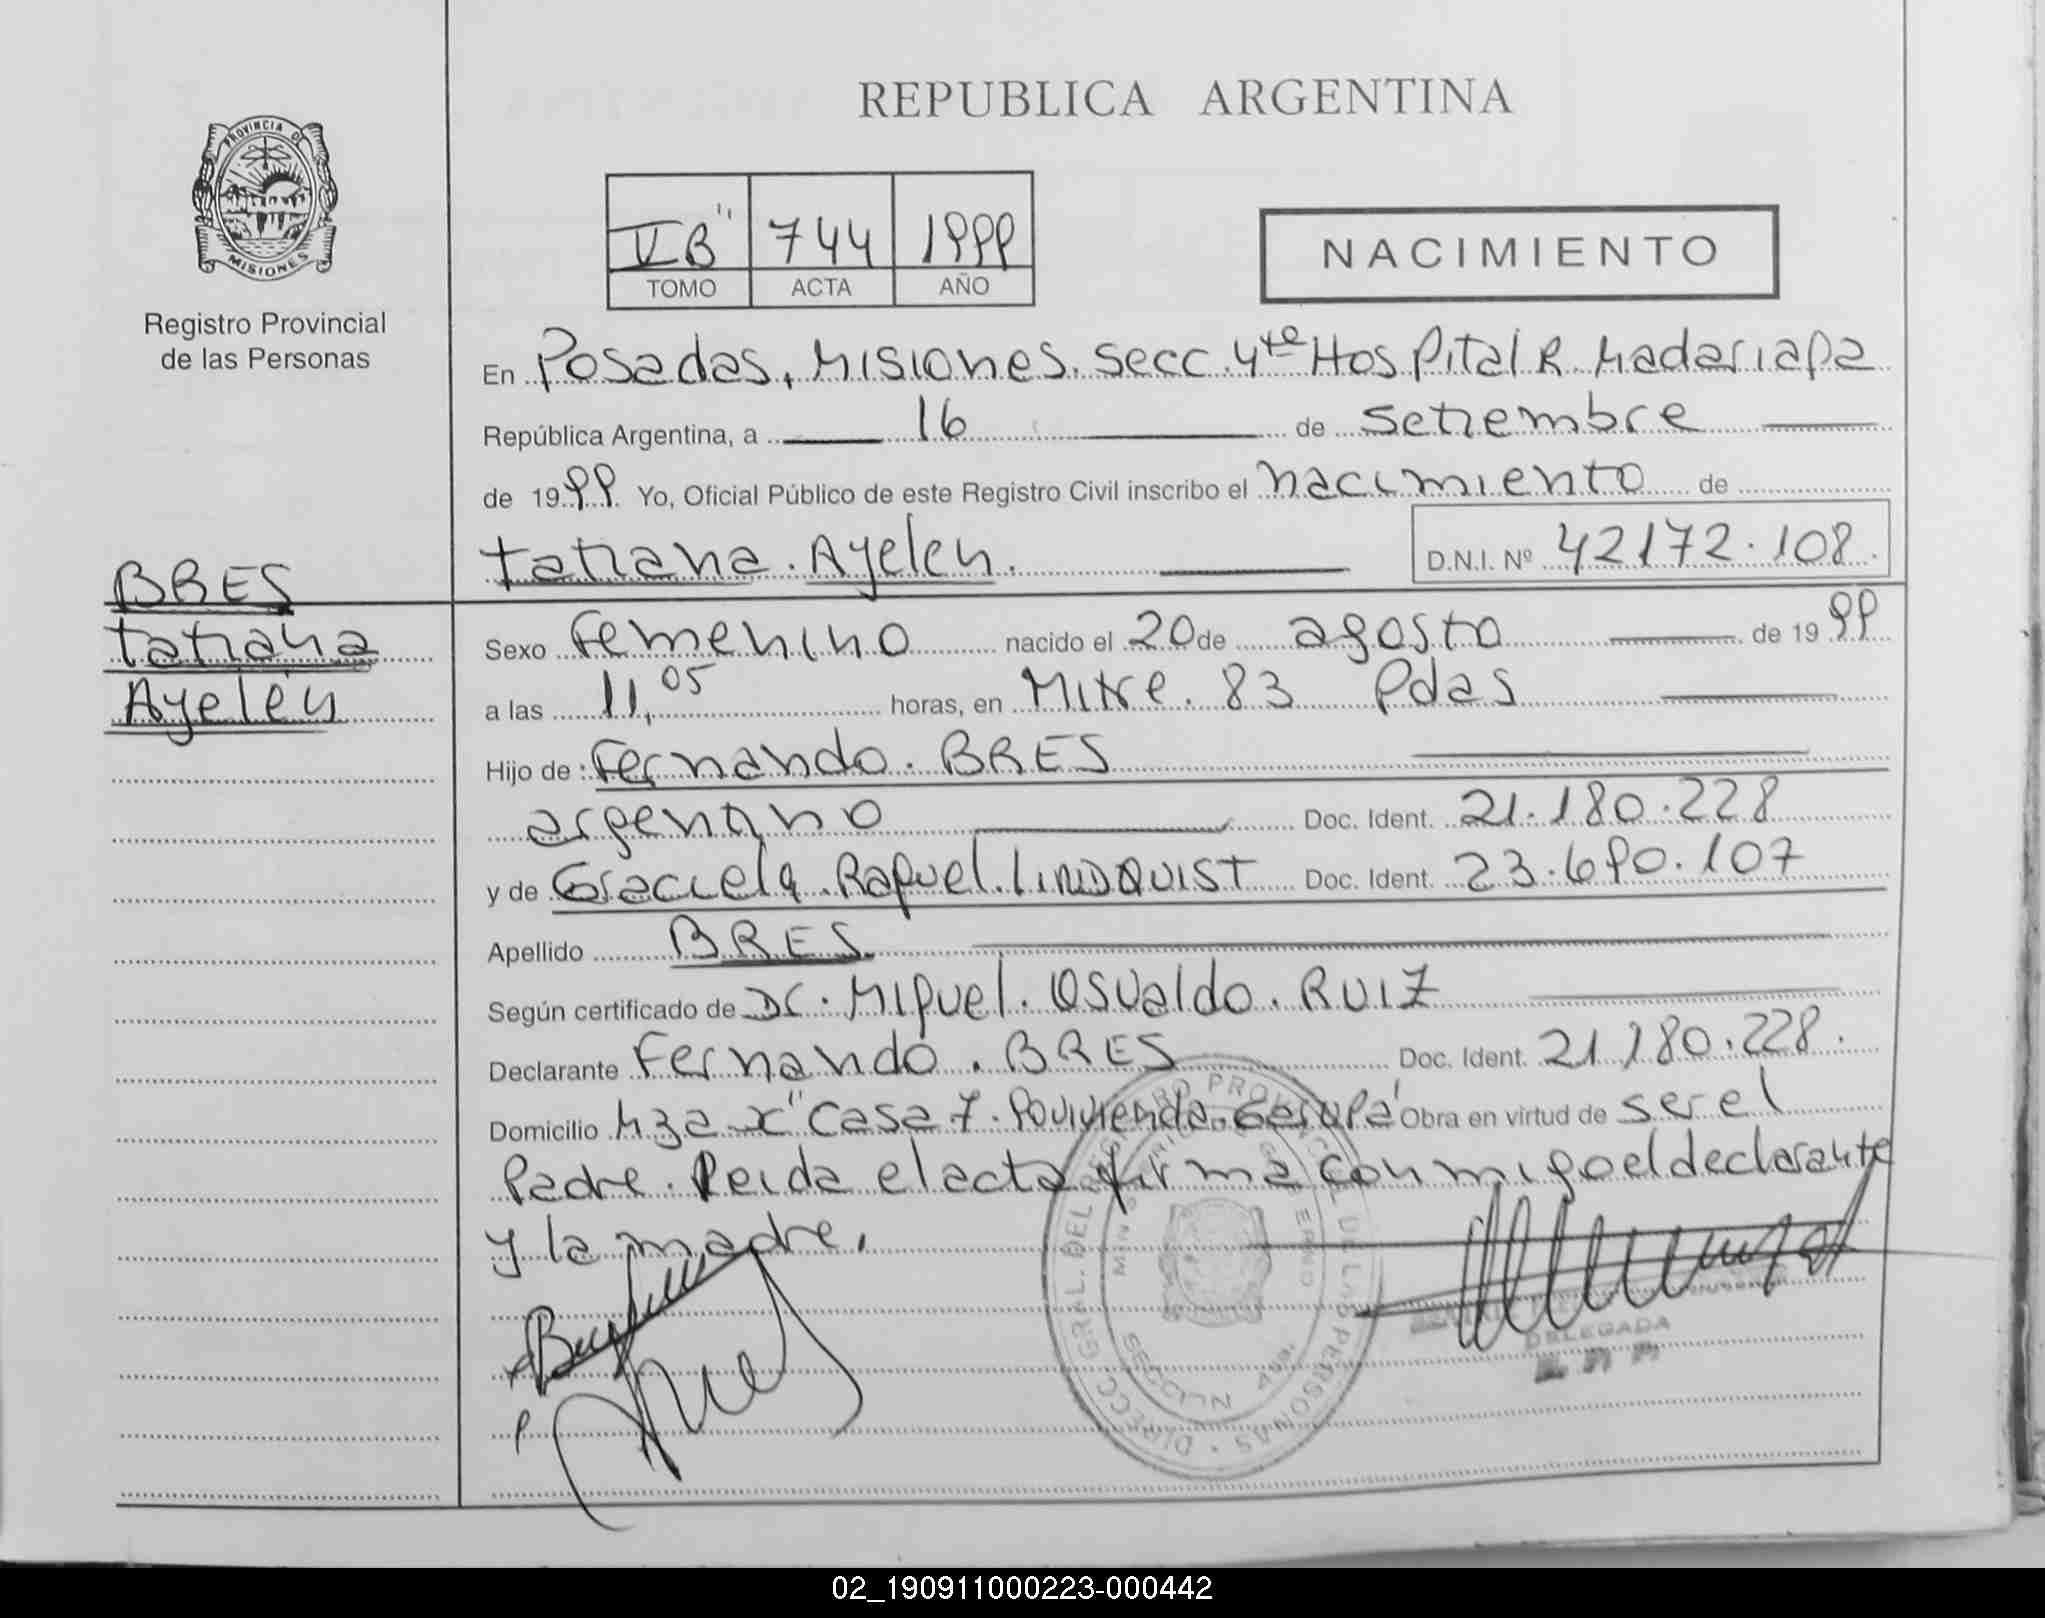 REPUBLICA ARGENTINA
PROVINCIA DE
MISIONES
Registro Provincial
de las Personas
V B" 744 1999
TOMO ACTA AÑO
NACIMIENTO
En Posadas, Misiones. Secc. 4te Hospital R. Madariaga
República Argentina, a 16 de setiembre
de 1999 Yo, Oficial Público de este Registro Civil inscribo el nacimiento de
Tatiana. Ayelen. D.N.I. Nº 42172.108.
BRES
Tatiana
Ayelén
Sexo Femenino nacido el 20 de agosto de 1999
a las 11,05 horas, en Mitre. 83 Pdas
Hijo de: Fernando. BRES
argentino Doc. Ident. 21.180.228
y de Graciela. Raquel. LINDQUIST Doc. Ident. 23.690.107
Apellido BRES
Según certificado de Dr. Miguel. Osvaldo. RUIZ
Declarante Fernando. BRES Doc. Ident. 21.180.228.
Domicilio Mza X" Casa 7. Garupá Obra en virtud de ser el
Padre. Leida el acta firma conmigo el declarante
y la madre.
DIRECC. GRAL. DEL REGISTRO PROVINCIAL DE LAS PERSONAS
MINISTERIO DE GOBIERNO
SECCION 4ta.
DELEGADA
02_190911000223-000442